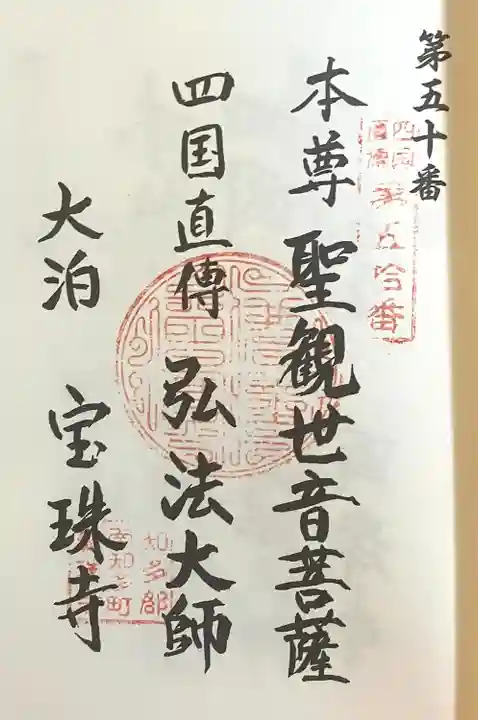 第五十番
四国
直傳
第五拾番
本尊 聖観世音菩薩
四国直傳 弘法大師
大泊 宝珠寺
知多郡